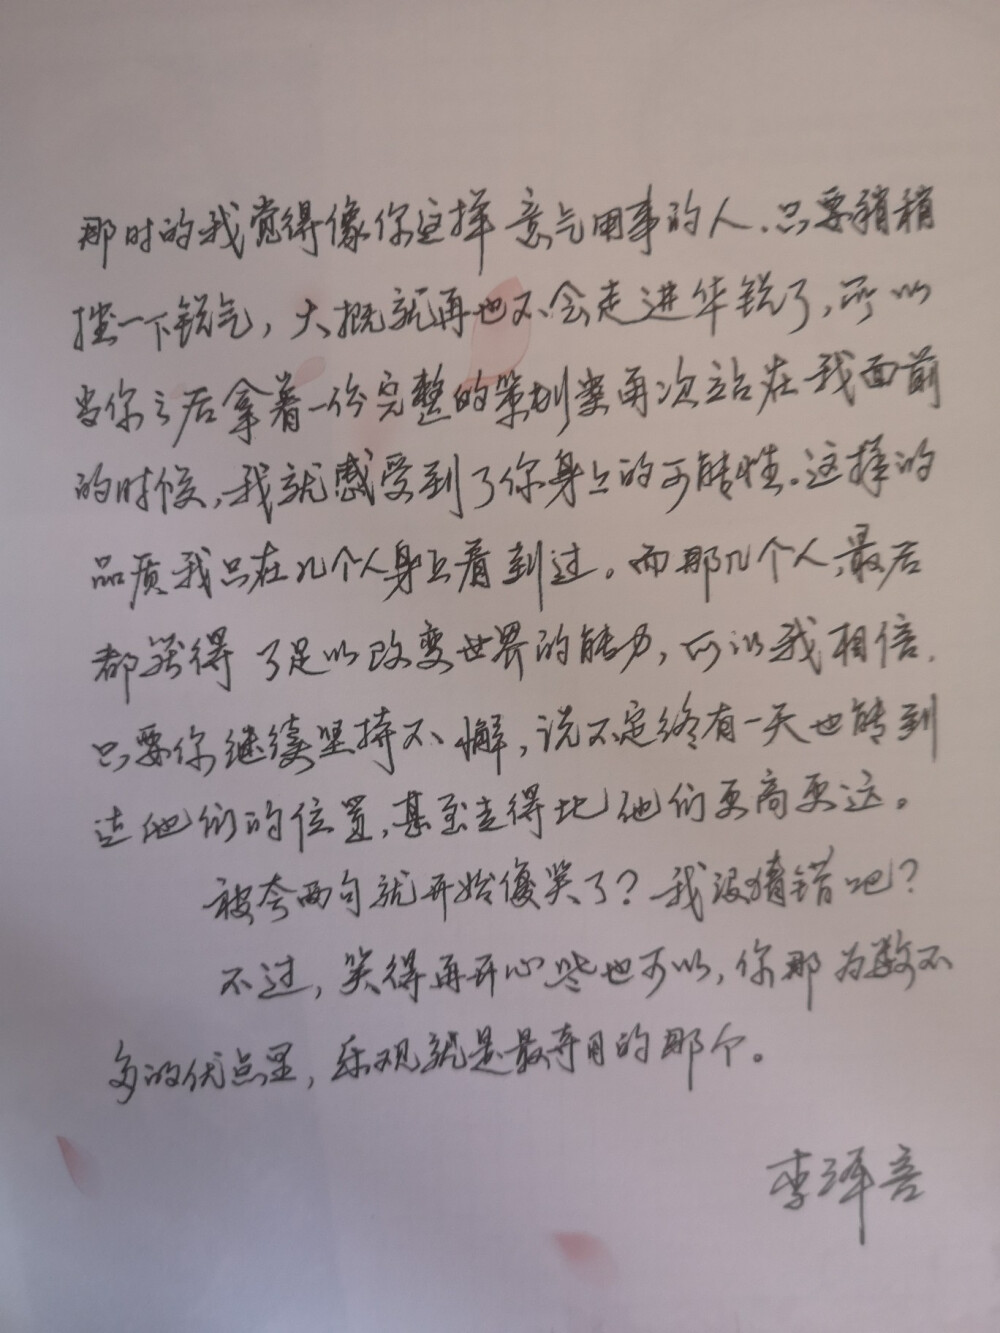 那时的我觉得像你这样意气用事的人，只要稍稍
挫一下锐气，大概就再也不会走进华锐了，所以
当你之后拿着一份完整的策划案再次站在我面前
的时候，我就感受到了你身上的可能性。这样的
品质我只在几个人身上看到过。而那几个人，最后
都获得了足以改变世界的能力，所以我相信，
只要你继续坚持不懈，说不定终有一天也能到
达他们的位置，甚至走得比他们更高更远。
被夸两句就开始傻笑了？我没猜错吧？
不过，笑得再开心些也可以，你那为数不
多的优点里，乐观就是最夺目的那个。
李泽言